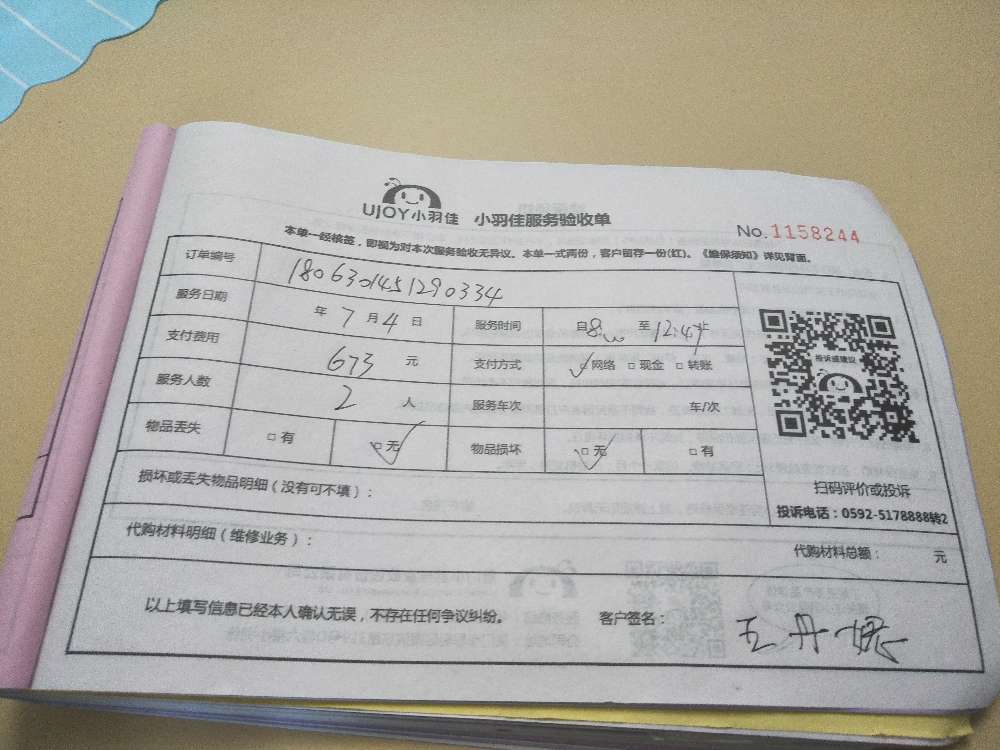 UJOY小羽佳 小羽佳服务验收单
No.1158244
本单一经核签，即视为对本次服务验收无异议。本单一式两份，客户留存一份(红)。《维保须知》详见背面。
订单编号 1806301451290334
服务日期 年 7 月 4 日 服务时间 自8:00 至 12:47止
支付费用 673 元 支付方式 ☑网络 □现金 □转账
服务人数 2 人 服务车次 车/次
物品丢失 □有 ☑无 物品损坏 ☑无 □有
投诉或建议
扫码评价或投诉
投诉电话：0592-5178888转2
损坏或丢失物品明细（没有可不填）：
代购材料明细（维修业务）： 代购材料总额： 元
以上填写信息已经本人确认无误，不存在任何争议纠纷。 客户签名： 王丹